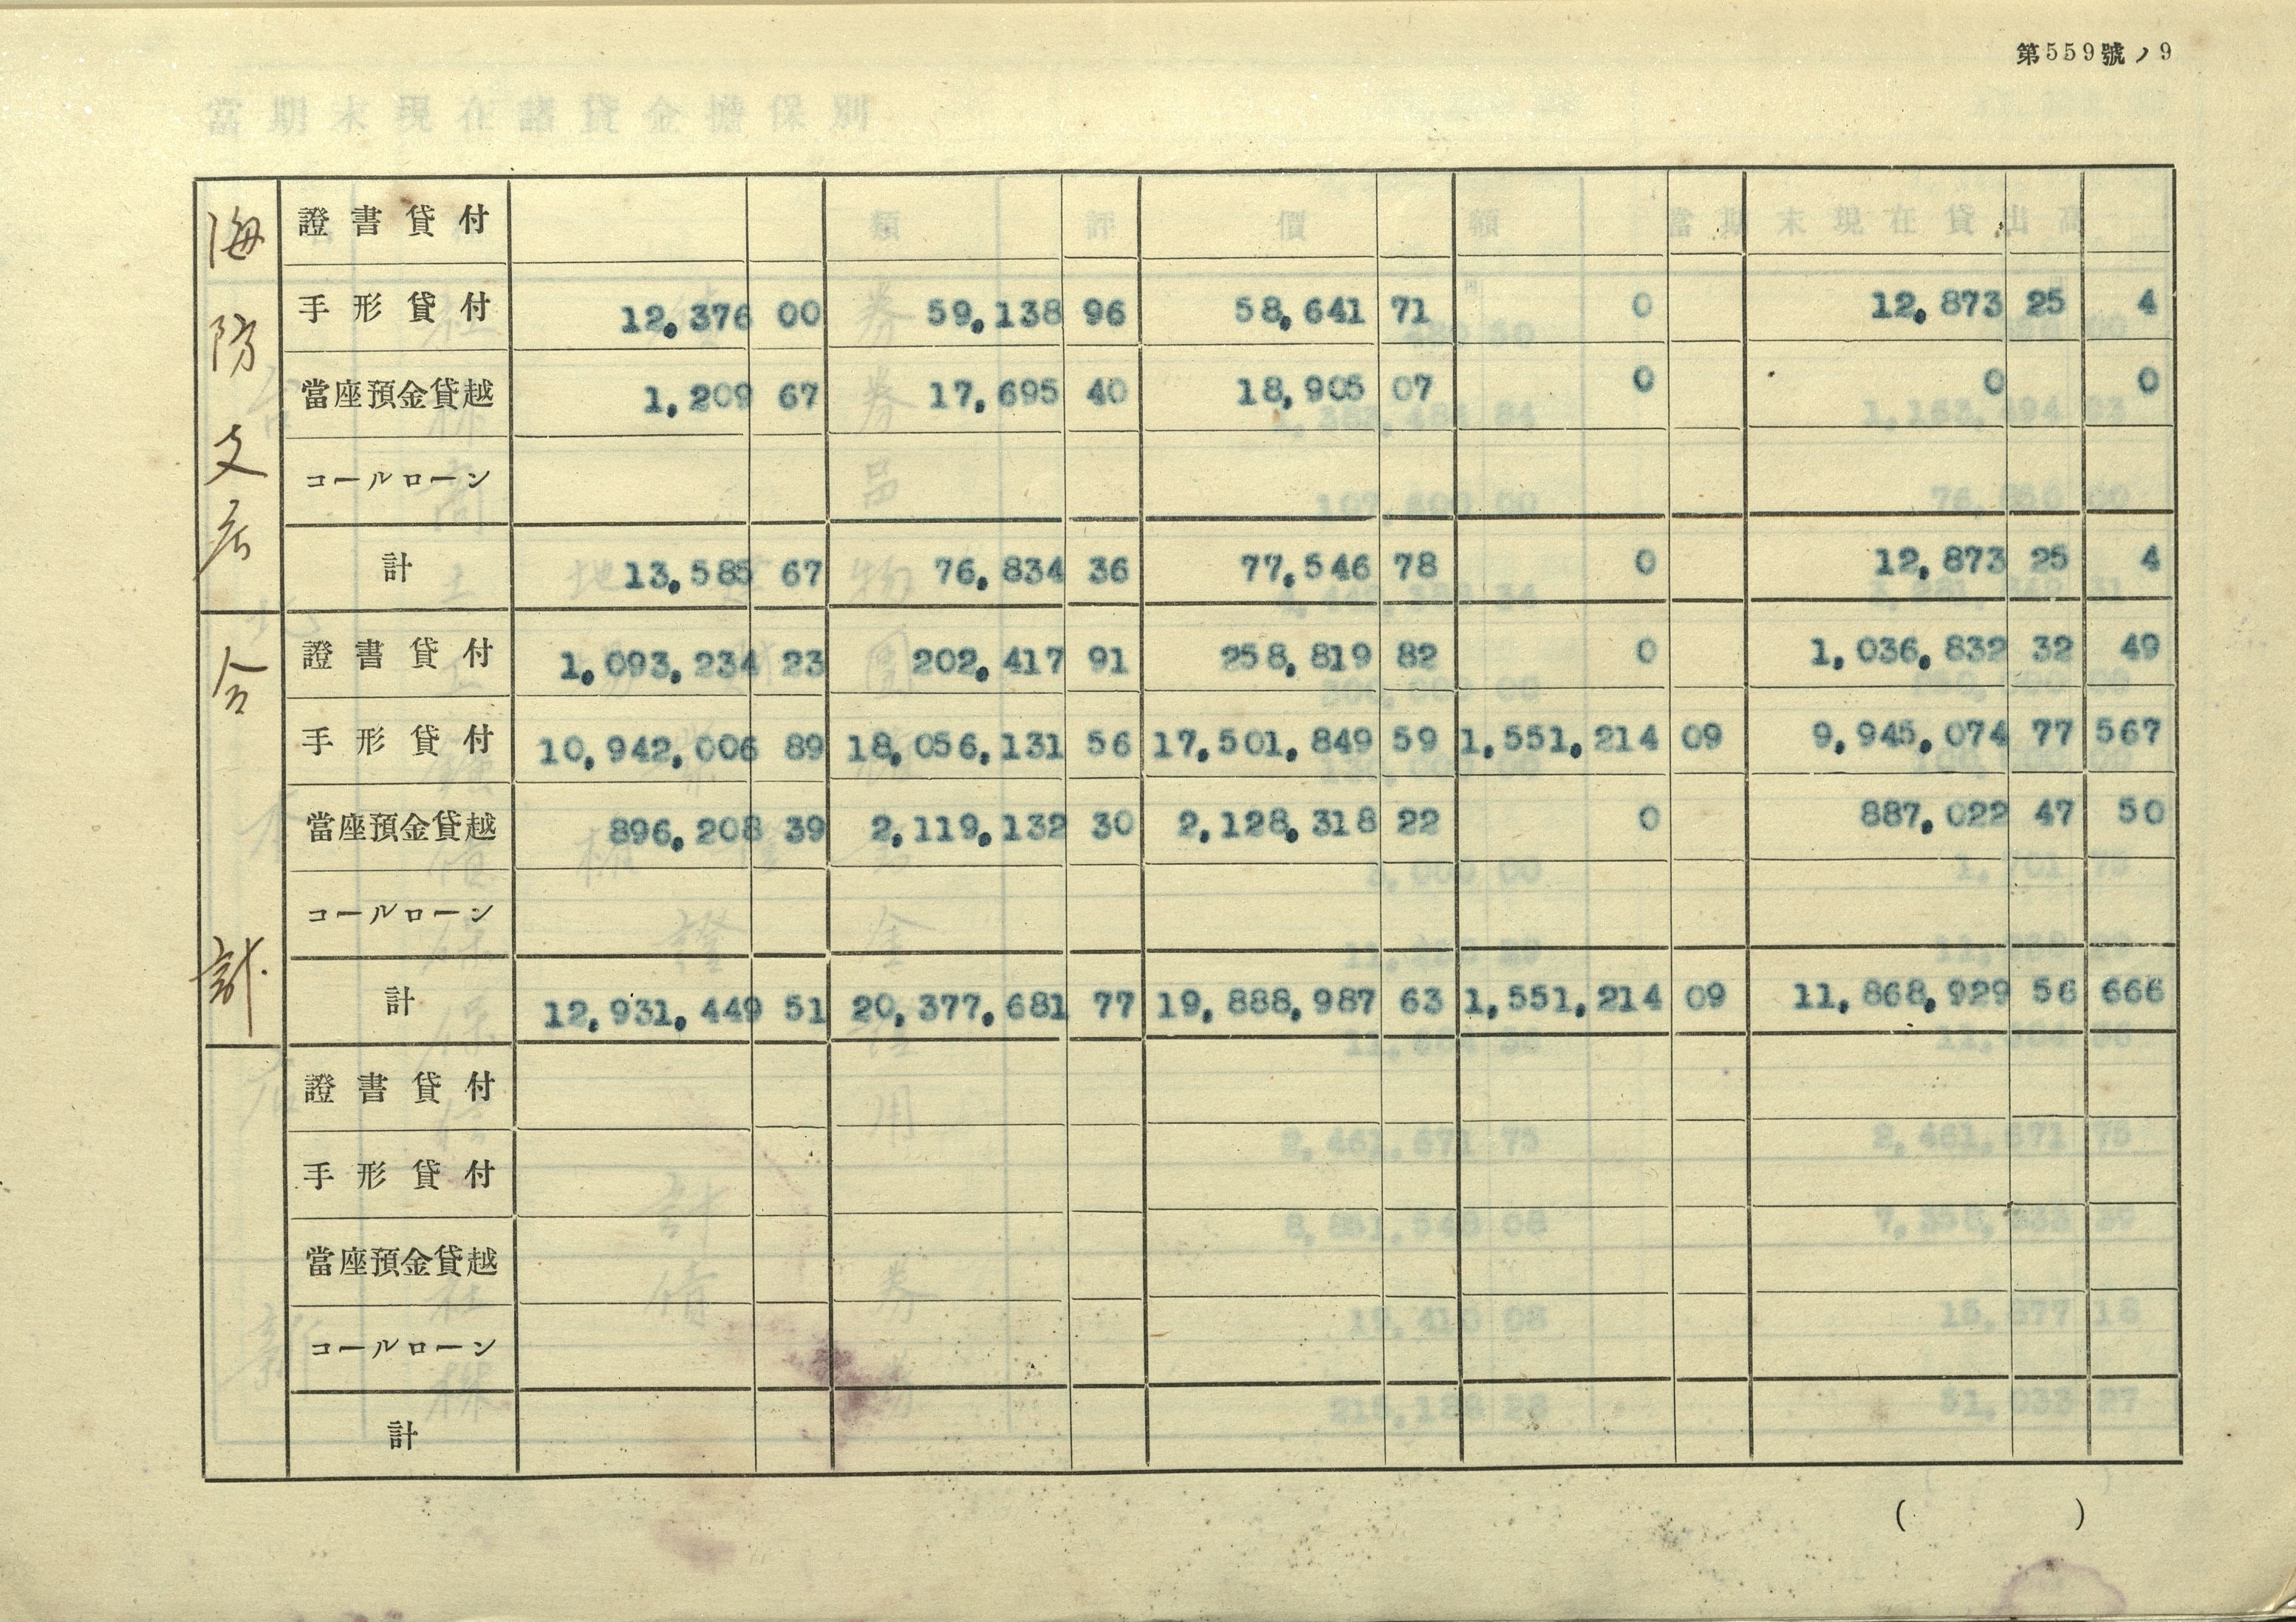 第559號ノ9
海防支店
證書貸付
手形貸付 12,376 00 59,138 96 58,641 71 0 12,873 25 4
當座預金貸越 1,209 67 17,695 40 18,905 07 0 0 0
コールローン
計 13,585 67 76,834 36 77,546 78 0 12,873 25 4
合計
證書貸付 1,093,234 23 202,417 91 258,819 82 0 1,036,832 32 49
手形貸付 10,942,006 89 18,056,131 56 17,501,849 59 1,551,214 09 9,945,074 77 567
當座預金貸越 896,208 39 2,119,132 30 2,128,318 22 0 887,022 47 50
コールローン
計 12,931,449 51 20,377,681 77 19,888,987 63 1,551,214 09 11,868,929 56 666
證書貸付
手形貸付
當座預金貸越
コールローン
計
( )